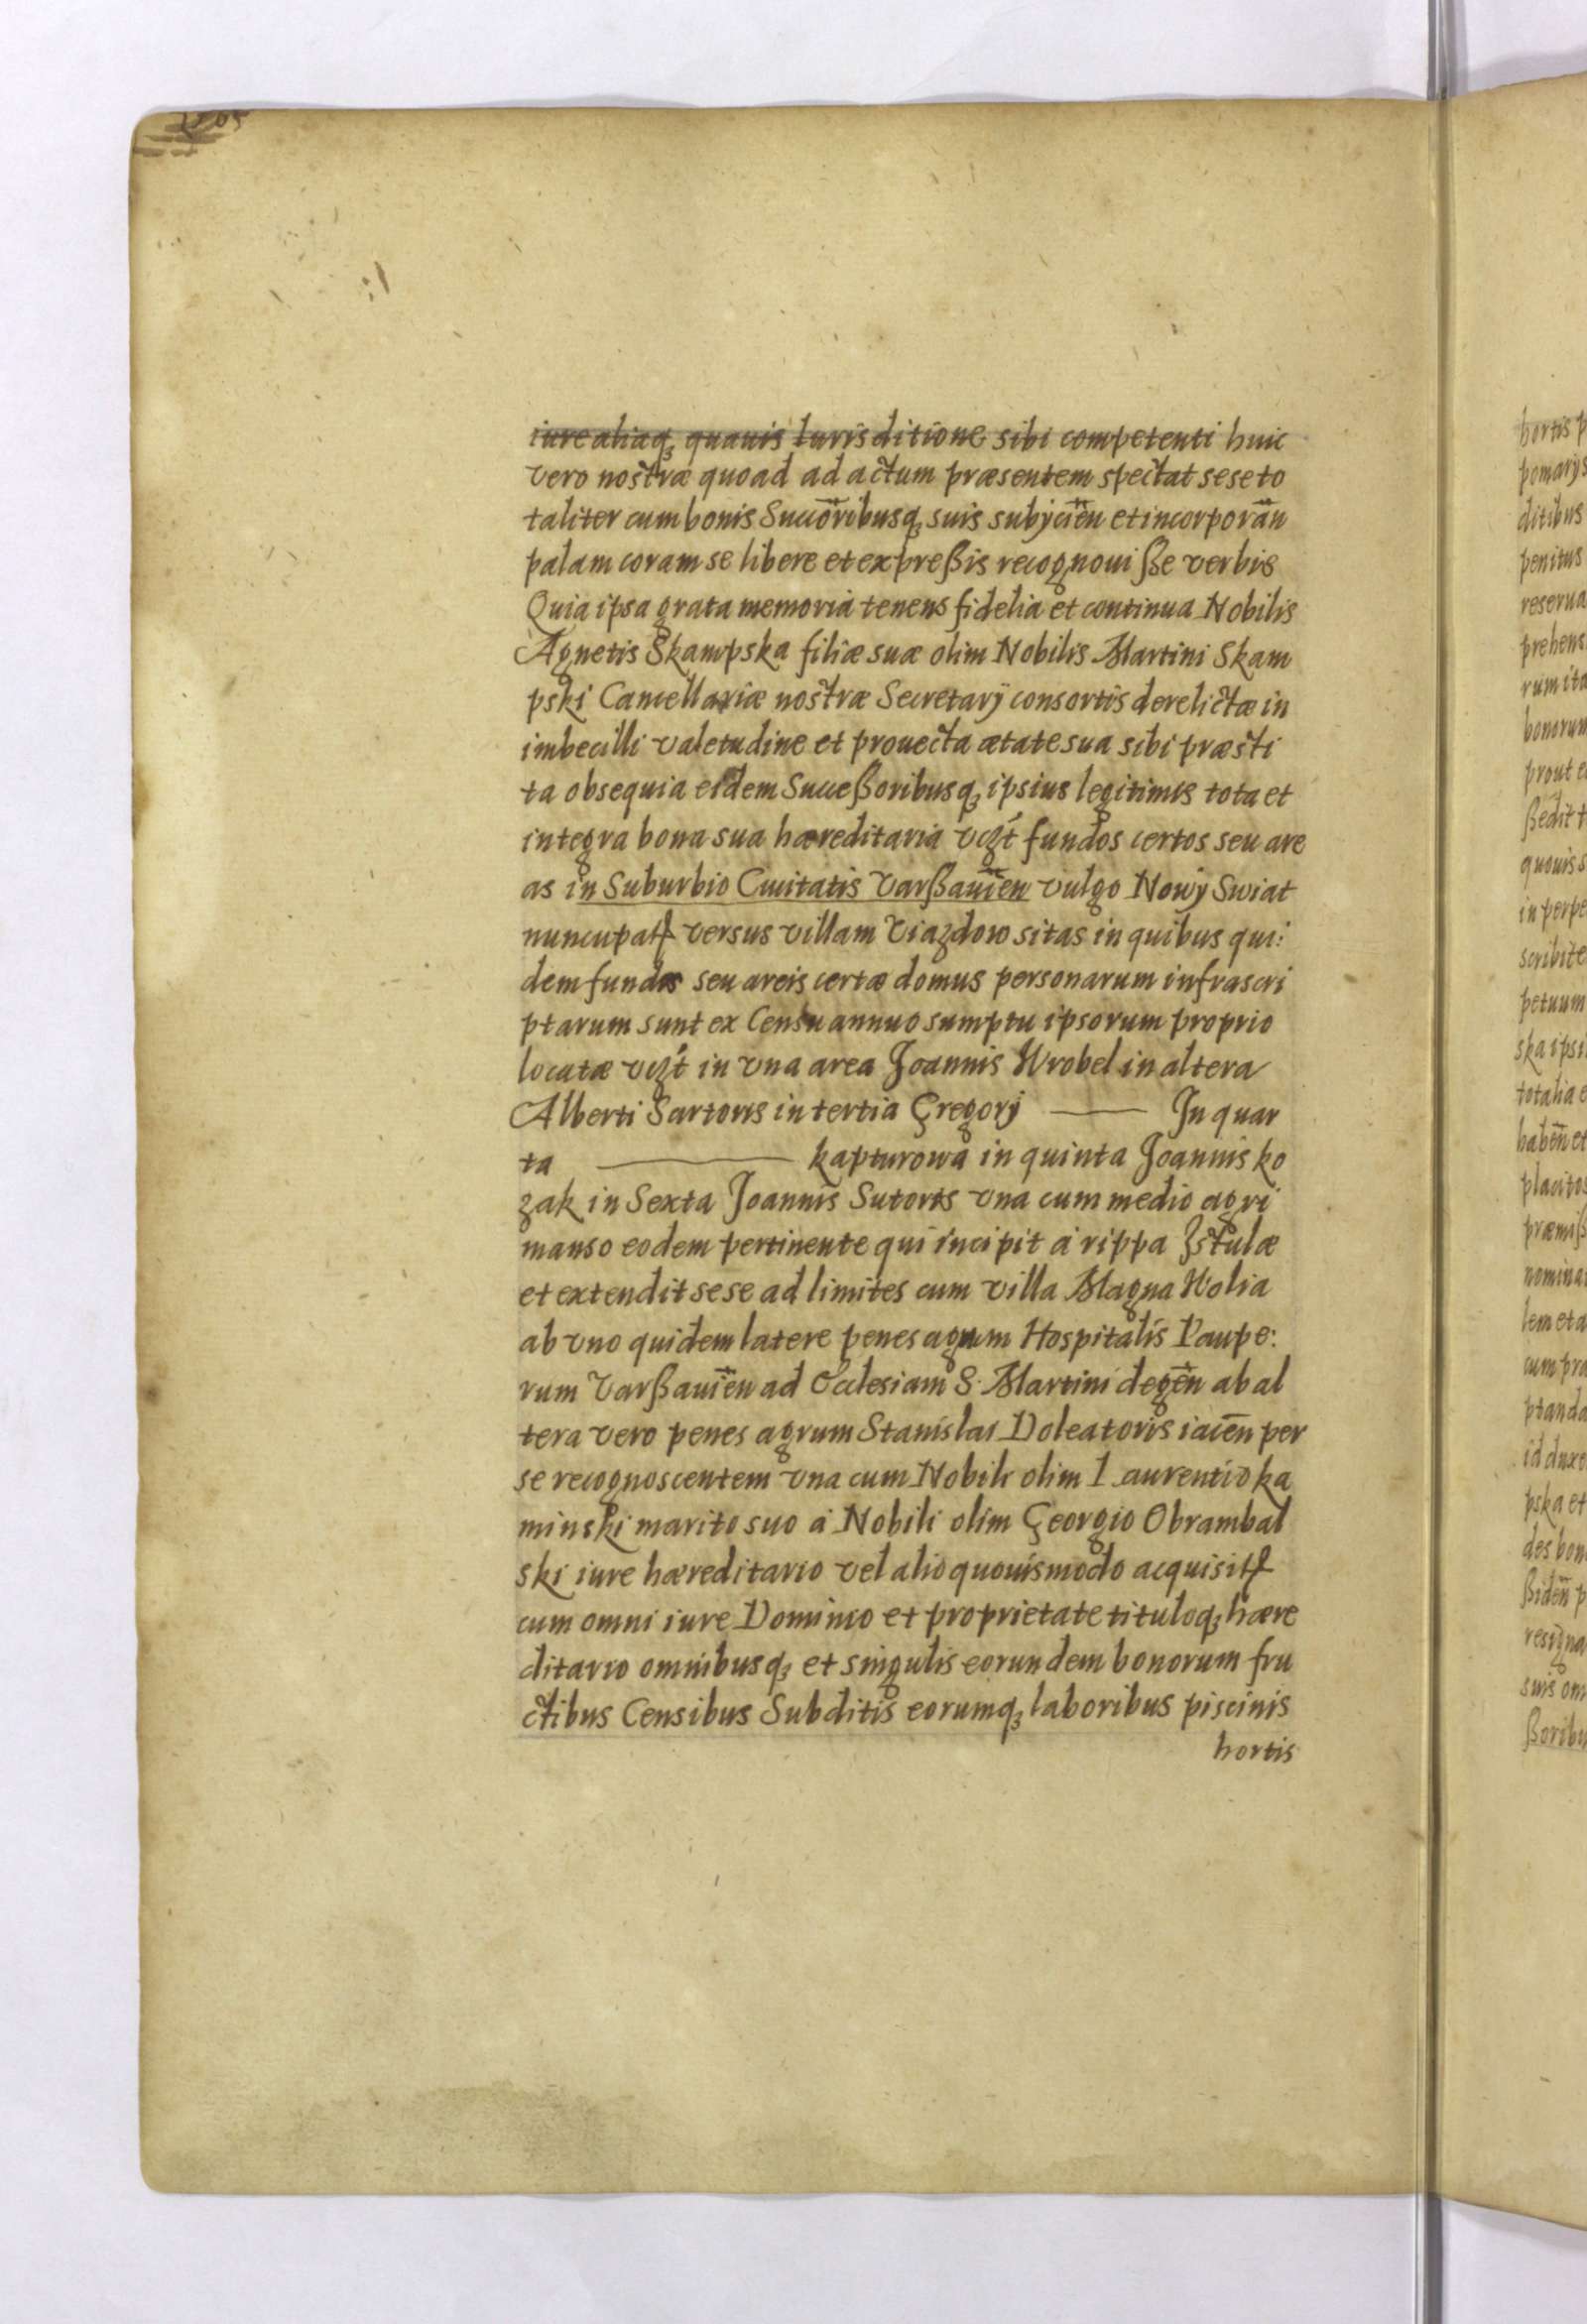 iure aliaq, quauis Iurisditione sibi competenti huic
vero nostræ quoad ad actum præsentem spectat sese to
taliter cum bonis Succoribusq, suis subÿcien̄ et incorporan̄
palam coram se libere et expreßis recognouiße verbis
Quia ipsa grata memoria tenens fidelia et continua Nobilis
Agnetis Skampska filiæ suæ olim Nobilis Martini Skam
pski Cancellariæ nostræ Secretarÿ consortis derelictæ in
imbecilli valetudine et prouecta ætate sua sibi præsti
ta obsequia eidem Succeßoribusq, ipsius legitimis tota et
integra bona sua hæreditaria vczt fundos certos seu are
as in Suburbio Ciuitatis Varßauien̄ vulgo Nowÿ Swiat
nuncupat versus villam Viazdow sitas in quibus qui:
dem fundis seu areis certæ domus personarum infrascri
ptarum sunt ex Censu annuo sumptu ipsorum proprio
locatæ vczt in vna area Joannis Wrobel in altera
Alberti Sartoris in tertia Gregorÿ ——— In quar
ta ——— kapturowa in quinta Joannis ko
zak in Sexta Joannis Sutoris vna cum medio agri
manso eodem pertinente qui incipit à rippa Istulæ
et extendit sese ad limites cum villa Magna Wolia
ab vno quidem latere penes agrum Hospitalis Paupe:
rum Varßauien̄ ad Ecclesiam S. Martini degen̄ ab al
tera vero penes agrum Stanislai Doleatoris iacen̄ per
se recognoscentem vna cum Nobili olim Laurentio ka
minski marito suo à Nobili olim Georgio Obrambal
ski iure hæreditario vel alio quouismodo acquisit
cum omni iure Dominio et proprietate tituloq, hære
ditario omnibusq, et singulis eorundem bonorum fru
ctibus Censibus Subditis eorumq, laboribus piscinis
hortis